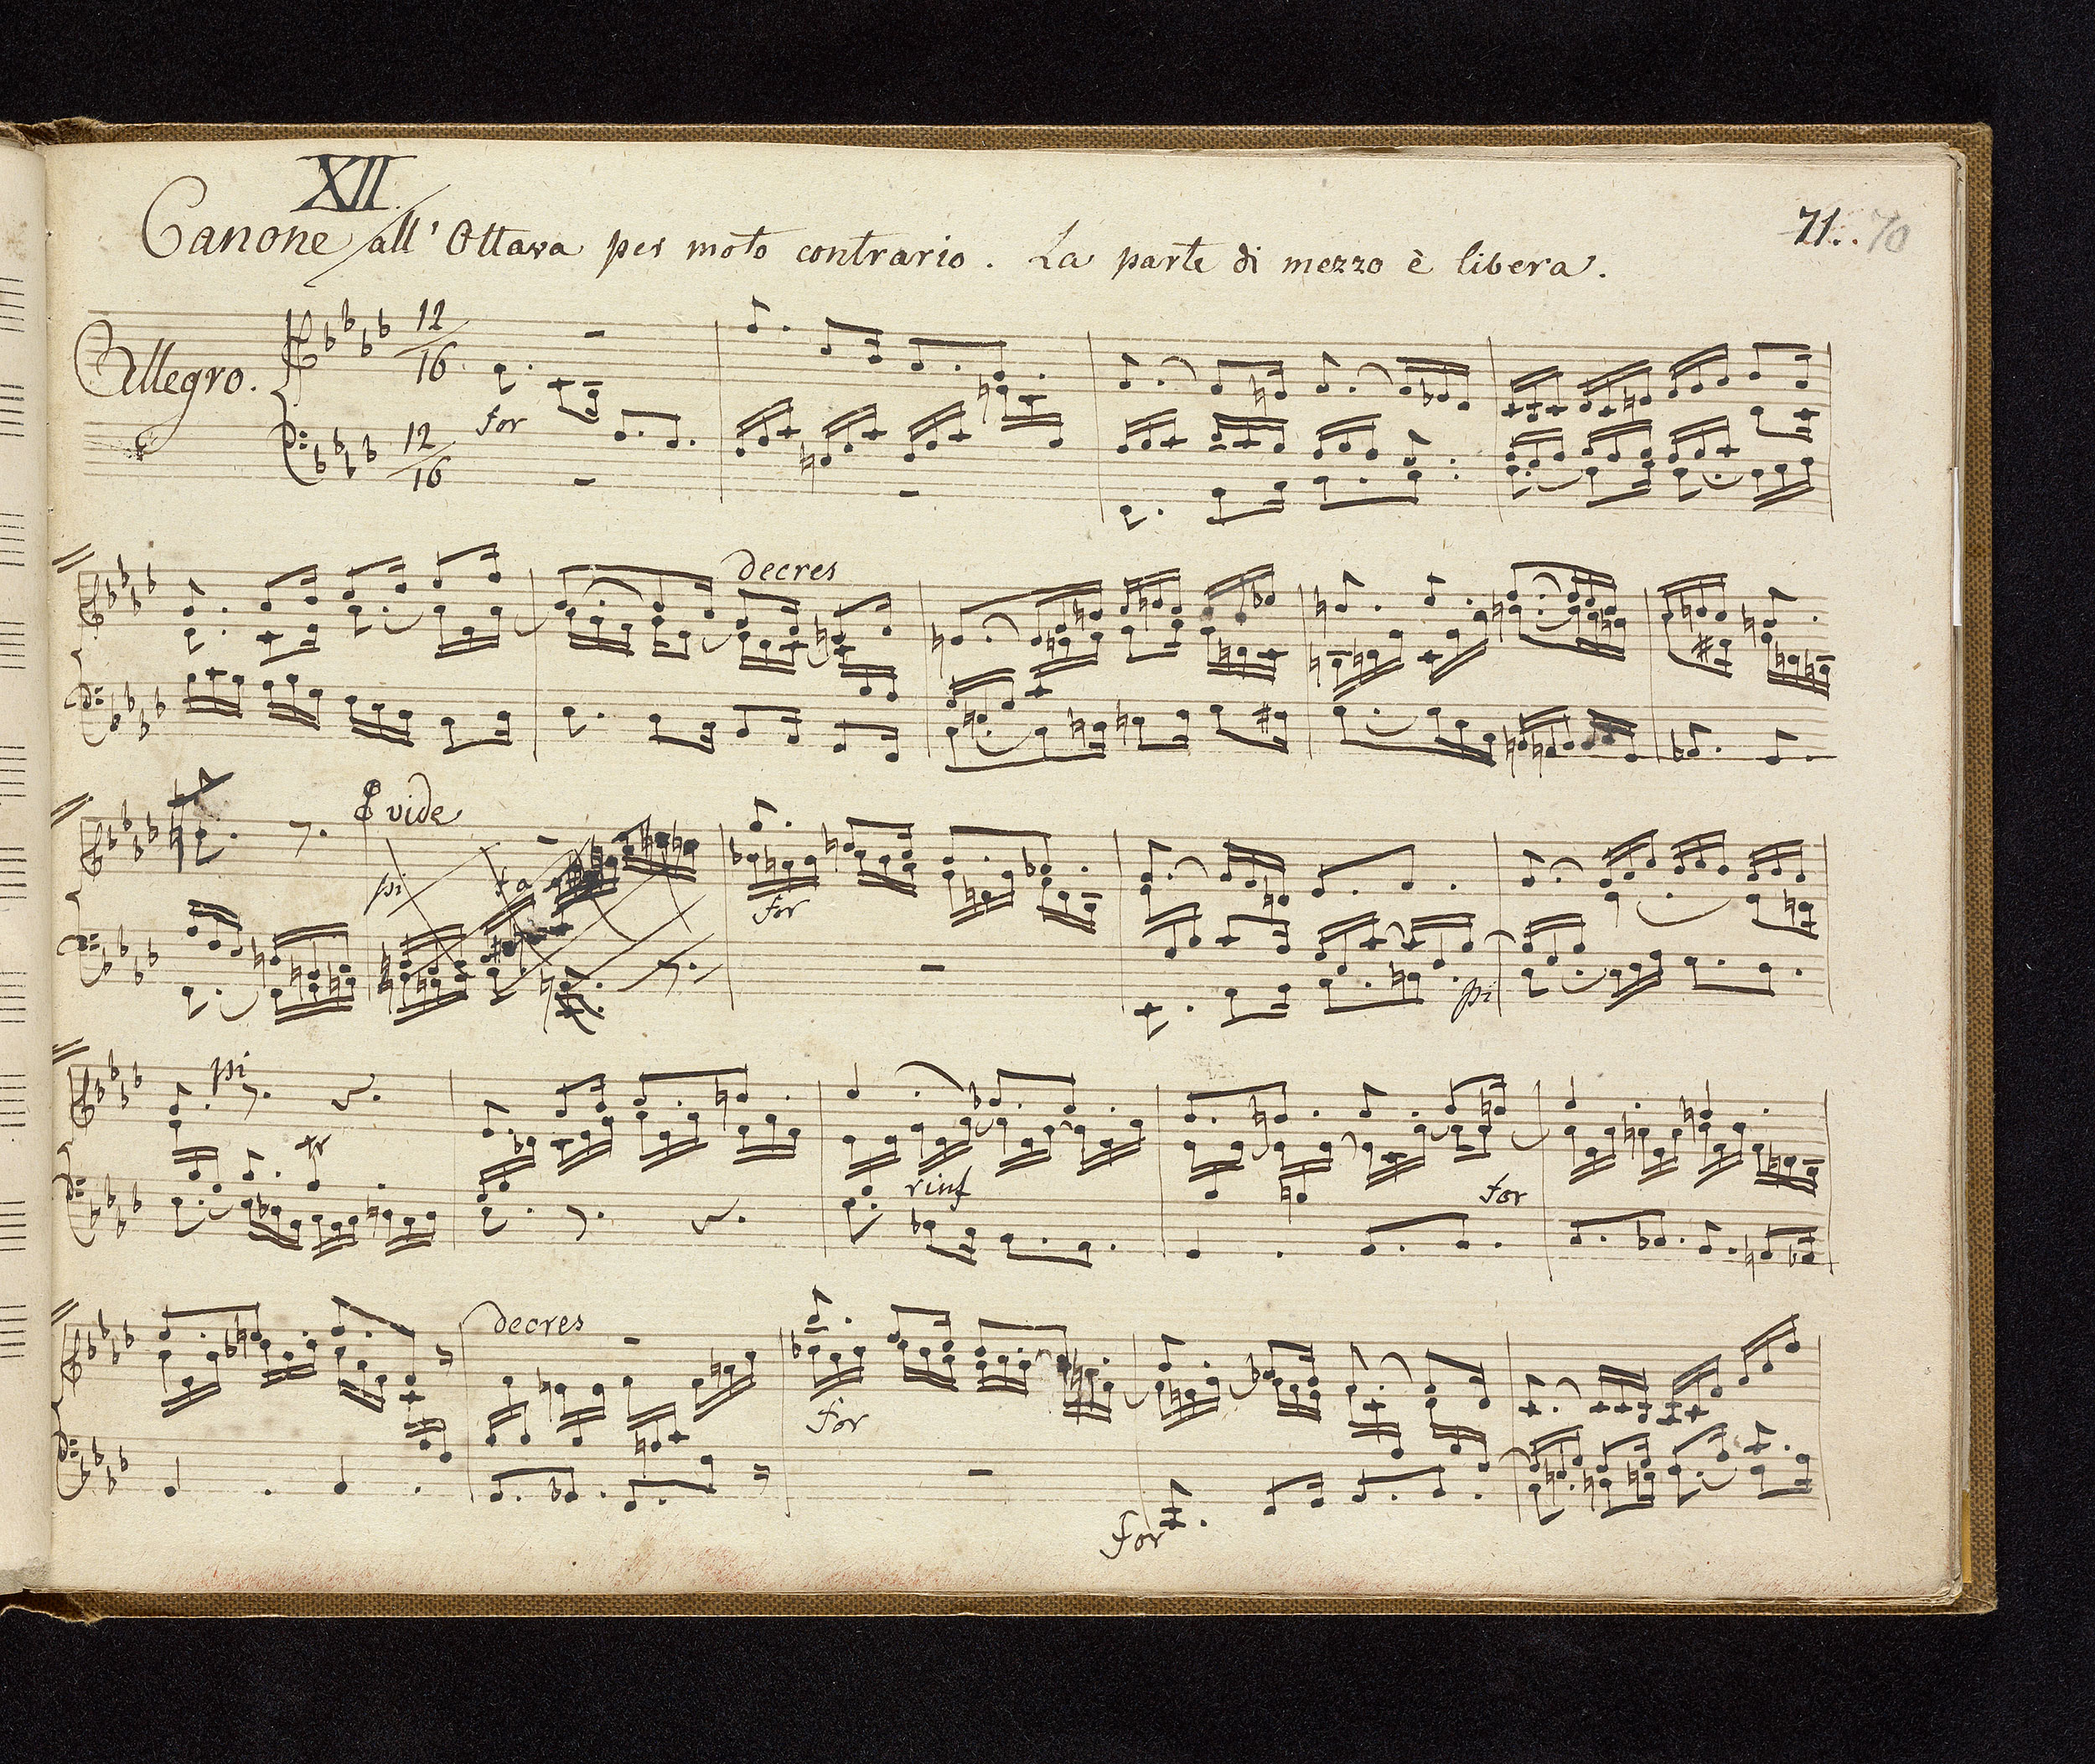 XII.
Canone all' Ottava per moto contrario. La parte di mezzo è libera.
71. 70
Allegro.
12
16
for
12
16
decres
vide
pi
for
pi
pi
tr
rinf
for
decres
for
for